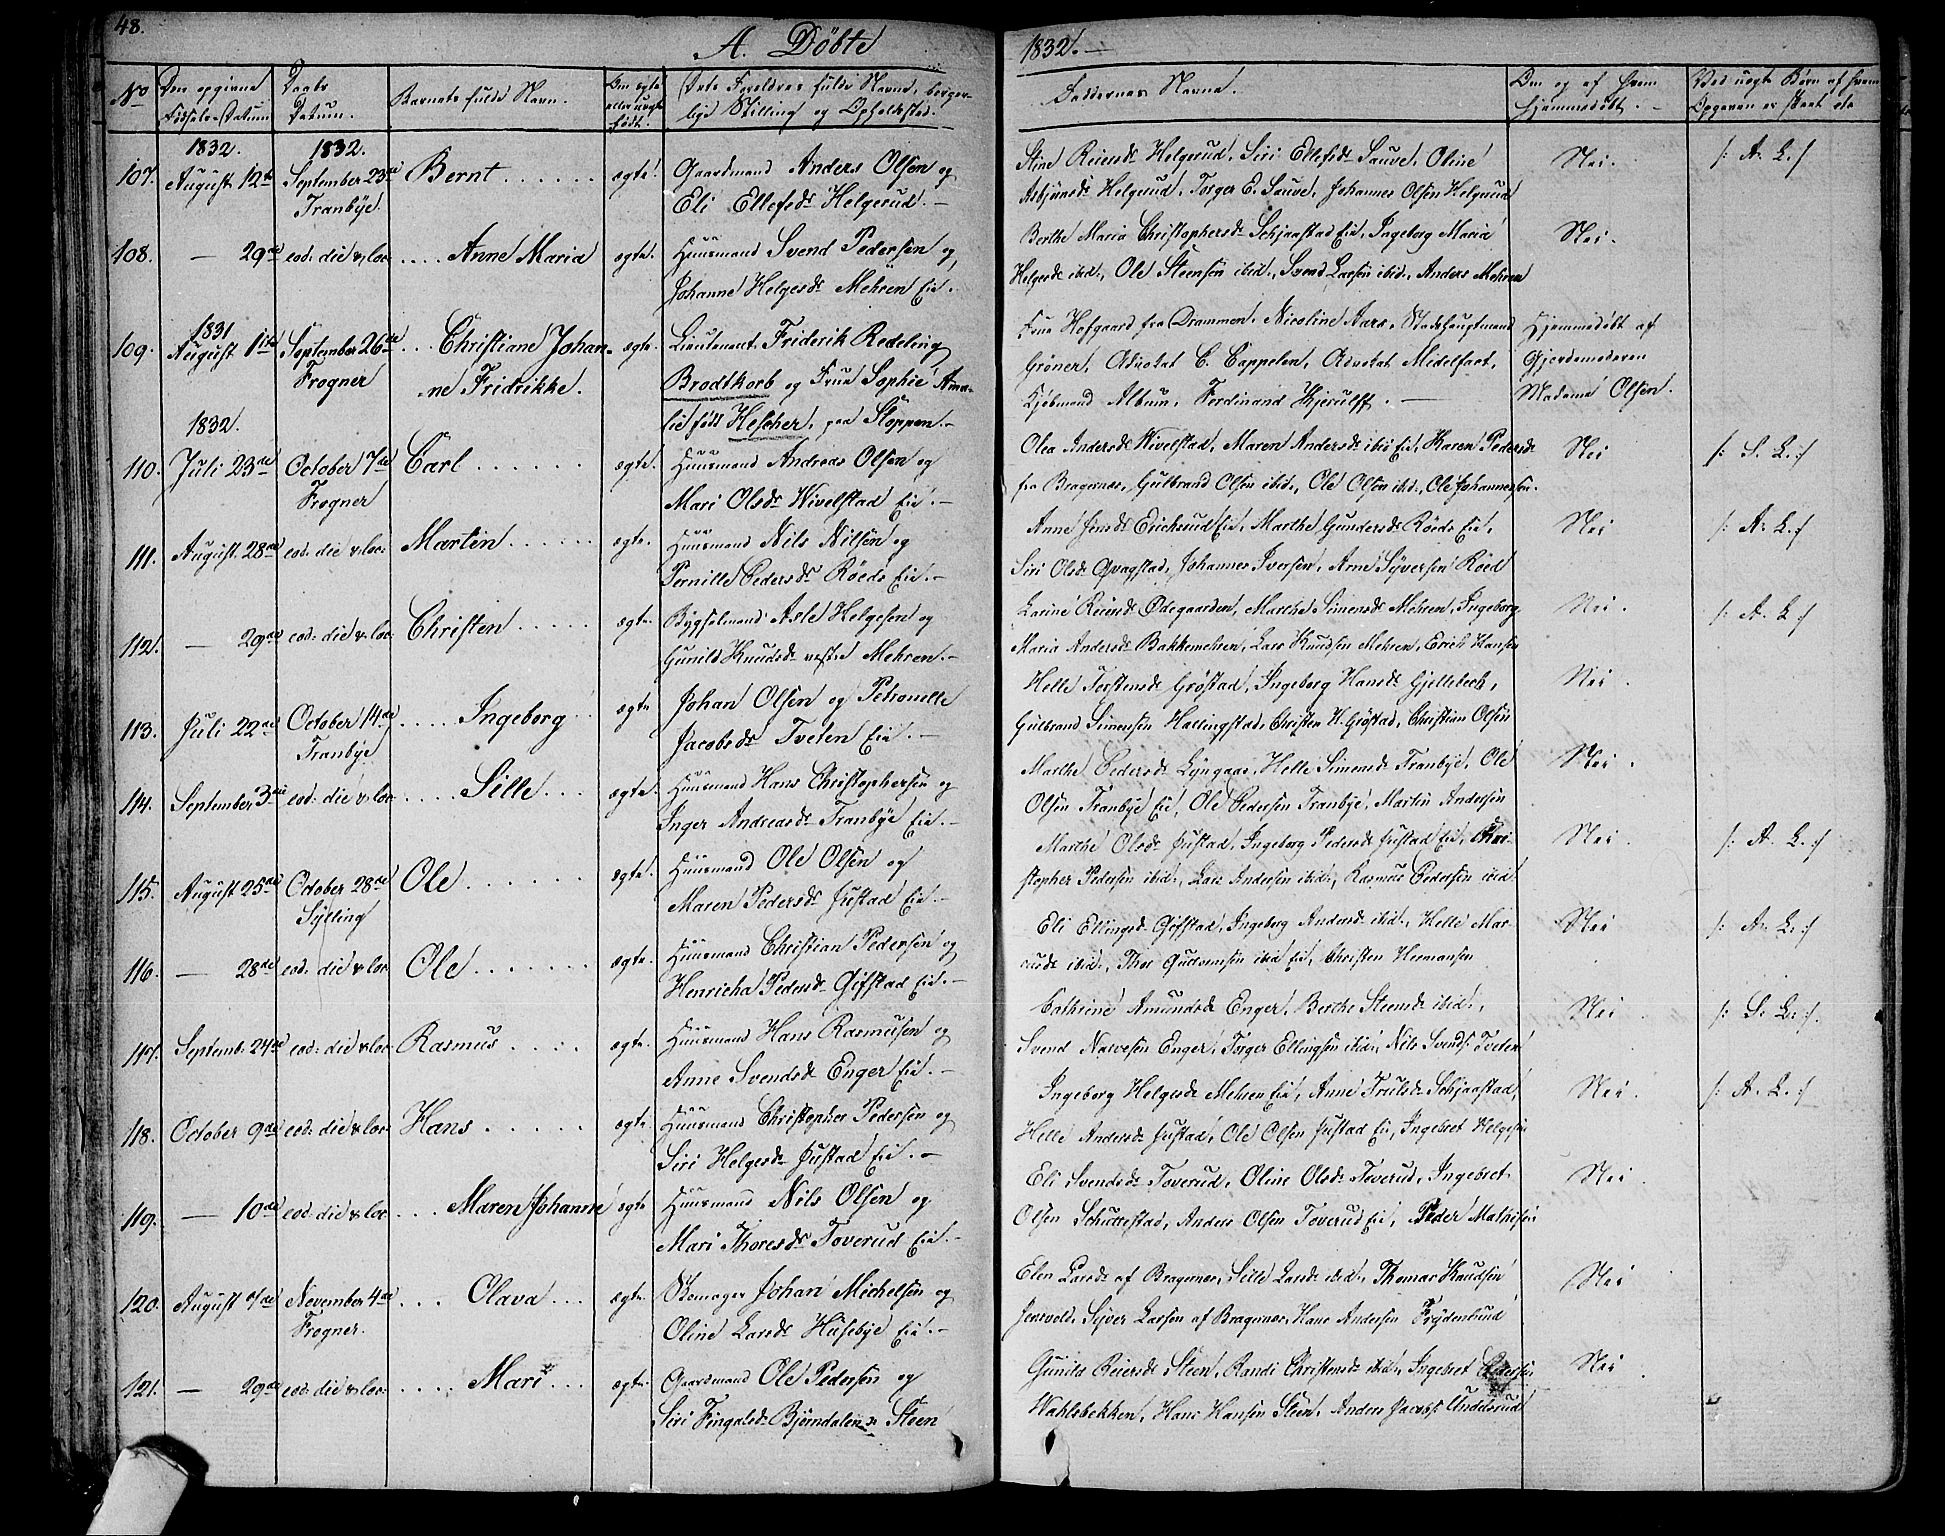 48.
A. Döbte
1832.
No
Den opgivne Födsels-Datum
Daabs Datum.
Barnets fulde Navn.
Om ægte eller uægte födt.
Dets Foreldres fulde Navne, borgerlige Stilling og Opholdssted.
Faddernes Navne.
Om og af hvem hjemmedöbt.
Ved uægte Børn af hvem Opgaven er skeet etc
1832.
1832.
107. August 12te September 23de Bernt ægte. Gaardmand Anders Olsen og
Tranbye. Eli Ellefsdr Helgerud.
Stine Reiersdr Helgerud, Siri Ellefsdr Sauve, Oline Nei. /: A. L. :/
Asbjönsdr Helgerud, Torger E. Sauve, Johannes Olsen Helgerud
108. — 29de eod: die & loc: Anne Maria ægte. Huusmand Svend Pedersen og
Johanne Helgesdr Mehren Eie.
Berthe Maria Christophersdr Schjaastad Eie, Ingeborg Maria Nei.
Helgesdr ibid., Ole Steensen ibid., Svend Larsen ibid., Anders Mehren
1831
109. August 1ste September 26de Christiane Johan- ægte. Lieutenant Friderik Redeling
Frogner ne Fridrikke. Brodtkorb og Frue Sophie Ama-
lie födt Hescher, paa Stoppen.
Frue Hofgaard fra Drammen, Nicoline Aars, Stadshauptmand Hjemmedöbt af
Gröner, Advokat C. Cappelen, Advokat Midelfart, Gjordemoderen
Kjöbmand Album, Ferdinand Kjerulff. Madame Olsen.
1832.
110. Juli 23de October 7de Carl ægte. Huusmand Andreas Olsen og
Frogner Mari Olsdr Wivelstad Eie.
Olea Andersdr Wivelstad, Maren Andersdr ibid Eie, Karen Pedersdr Nei /: S. L. :/
fra Bragernes, Gulbrand Olsen ibid., Ole Olsen ibid., Ole Johannessen.
111. August 28de eod: die & loc: Martin ægte. Huusmand Nils Nilsen og
Pernille Pedersdr Röeds Eie.
Anne Jensdr Erichsrud Eie, Marthe Gundersdr Röeds Eie, Nei /: A. L. :/
Siri Olsdr Qvagstad, Johannes Iversen, Arne Syversen Röed
112. — 29de eod: die & loc: Christen ægte. Bygselmand Asle Helgesen og
Gunild Knudsdr vestre Mehren.
Karine Reiersdr Ödegaarden, Marthe Simensdr Mehren, Ingeborg Nei. /: A. L :/
Maria Andersdr Bakkemehren, Lars Knudsen Mehren, Erich Hansen
113. Juli 22de October 14de Ingeborg ægte Johan Olsen og Petronelle
Tranbye Jacobsdr Tveten Eie.
Helle Torstensdr Gröstad, Ingeborg Hansdr Gjellebech, Nei.
Gulbrand Simensen Hallingstad, Christen H. Gröstad, Christian Olsen
114. September 3die eod: die & loc: Sille ægte. Huusmand Hans Christophersen og
Inger Andreasdr Tranbye Eie.
Marthe Pedersdr Lyngaas, Helle Simensdr Tranbye, Ole Nei.
Olsen Tranbye Eie, Ole Pedersen Tranbye, Martin Andersen
115. August 25de October 28de Ole ægte. Huusmand Ole Olsen og
Sylling Maren Pedersdr Justad Eie.
Marthe Olsdr Justad, Ingeborg Pedersdr Justad Eie, Chri- Nei. /: A. L. :/
stopher Pedersen ibid., Lars Andersen ibid., Rasmus Pedersen ibid
116. — 28de eod: die & loc: Ole ægte. Huusmand Christian Pedersen og
Henricha Pedersdr Gifstad Eie.
Eli Ellingsdr Gifstad, Ingeborg Andersdr ibid., Helle Mar- Nei /: A. L. :/
cusdr ibid., Thor Gudvensen ibid Eie, Christen Hermansen
117. Septemb: 24de eod: die & loc: Rasmus ægte. Huusmand Hans Rasmusen og
Anne Svendsdr Enger Eie.
Cathrine Amundsdr Enger, Berthe Steensdr ibid., Nei /: S. L. :/
Svend Narvesen Enger, Torger Ellingsen ibid., Nils Svends: Tveten
118. October 9de eod: die & loc: Hans ægte Huusmand Christopher Pedersen og
Siri Helgesdr Justad Eie.
Ingeborg Helgesdr Mehren Eie, Anne Trulsdr Schjaastad, Nei. /: A. L. :/
Helle Andersdr Justad, Ole Olsen Justad Eie, Ingebret Helgesen
119. — 10de eod: die & loc: Maren Johanne ægte Huusmand Nils Olsen og
Mari Thoresdr Toverud Eie.
Eli Svendsdr Toverud, Oline Olsdr Toverud, Ingebret Nei.
Olsen Schuttestad, Anders Olsen Toverud Eie, Peder Mathisen
120. August 7de November 4de Olava ægte. Skomager Johan Michelsen og
Frogner. Oline Larsdr Husebye Eie.
Elen Larsdr af Bragernes, Sille Larsdr ibid., Thomas Knudsen Nei
Jensvold, Syver Larsen af Bragernes, Hans Andersen Frydenlund
121. — 29de eod: die & loc: Mari ægte. Gaardmand Ole Pedersen og
Siri Fingalsdr Björndalen Steen
Gunild Reiersdr Steen, Randi Christensdr ibid., Ingebret Pedersen Nei
Wahlsbekken, Hans Hansen Steen, Anders Jacobs: Underud